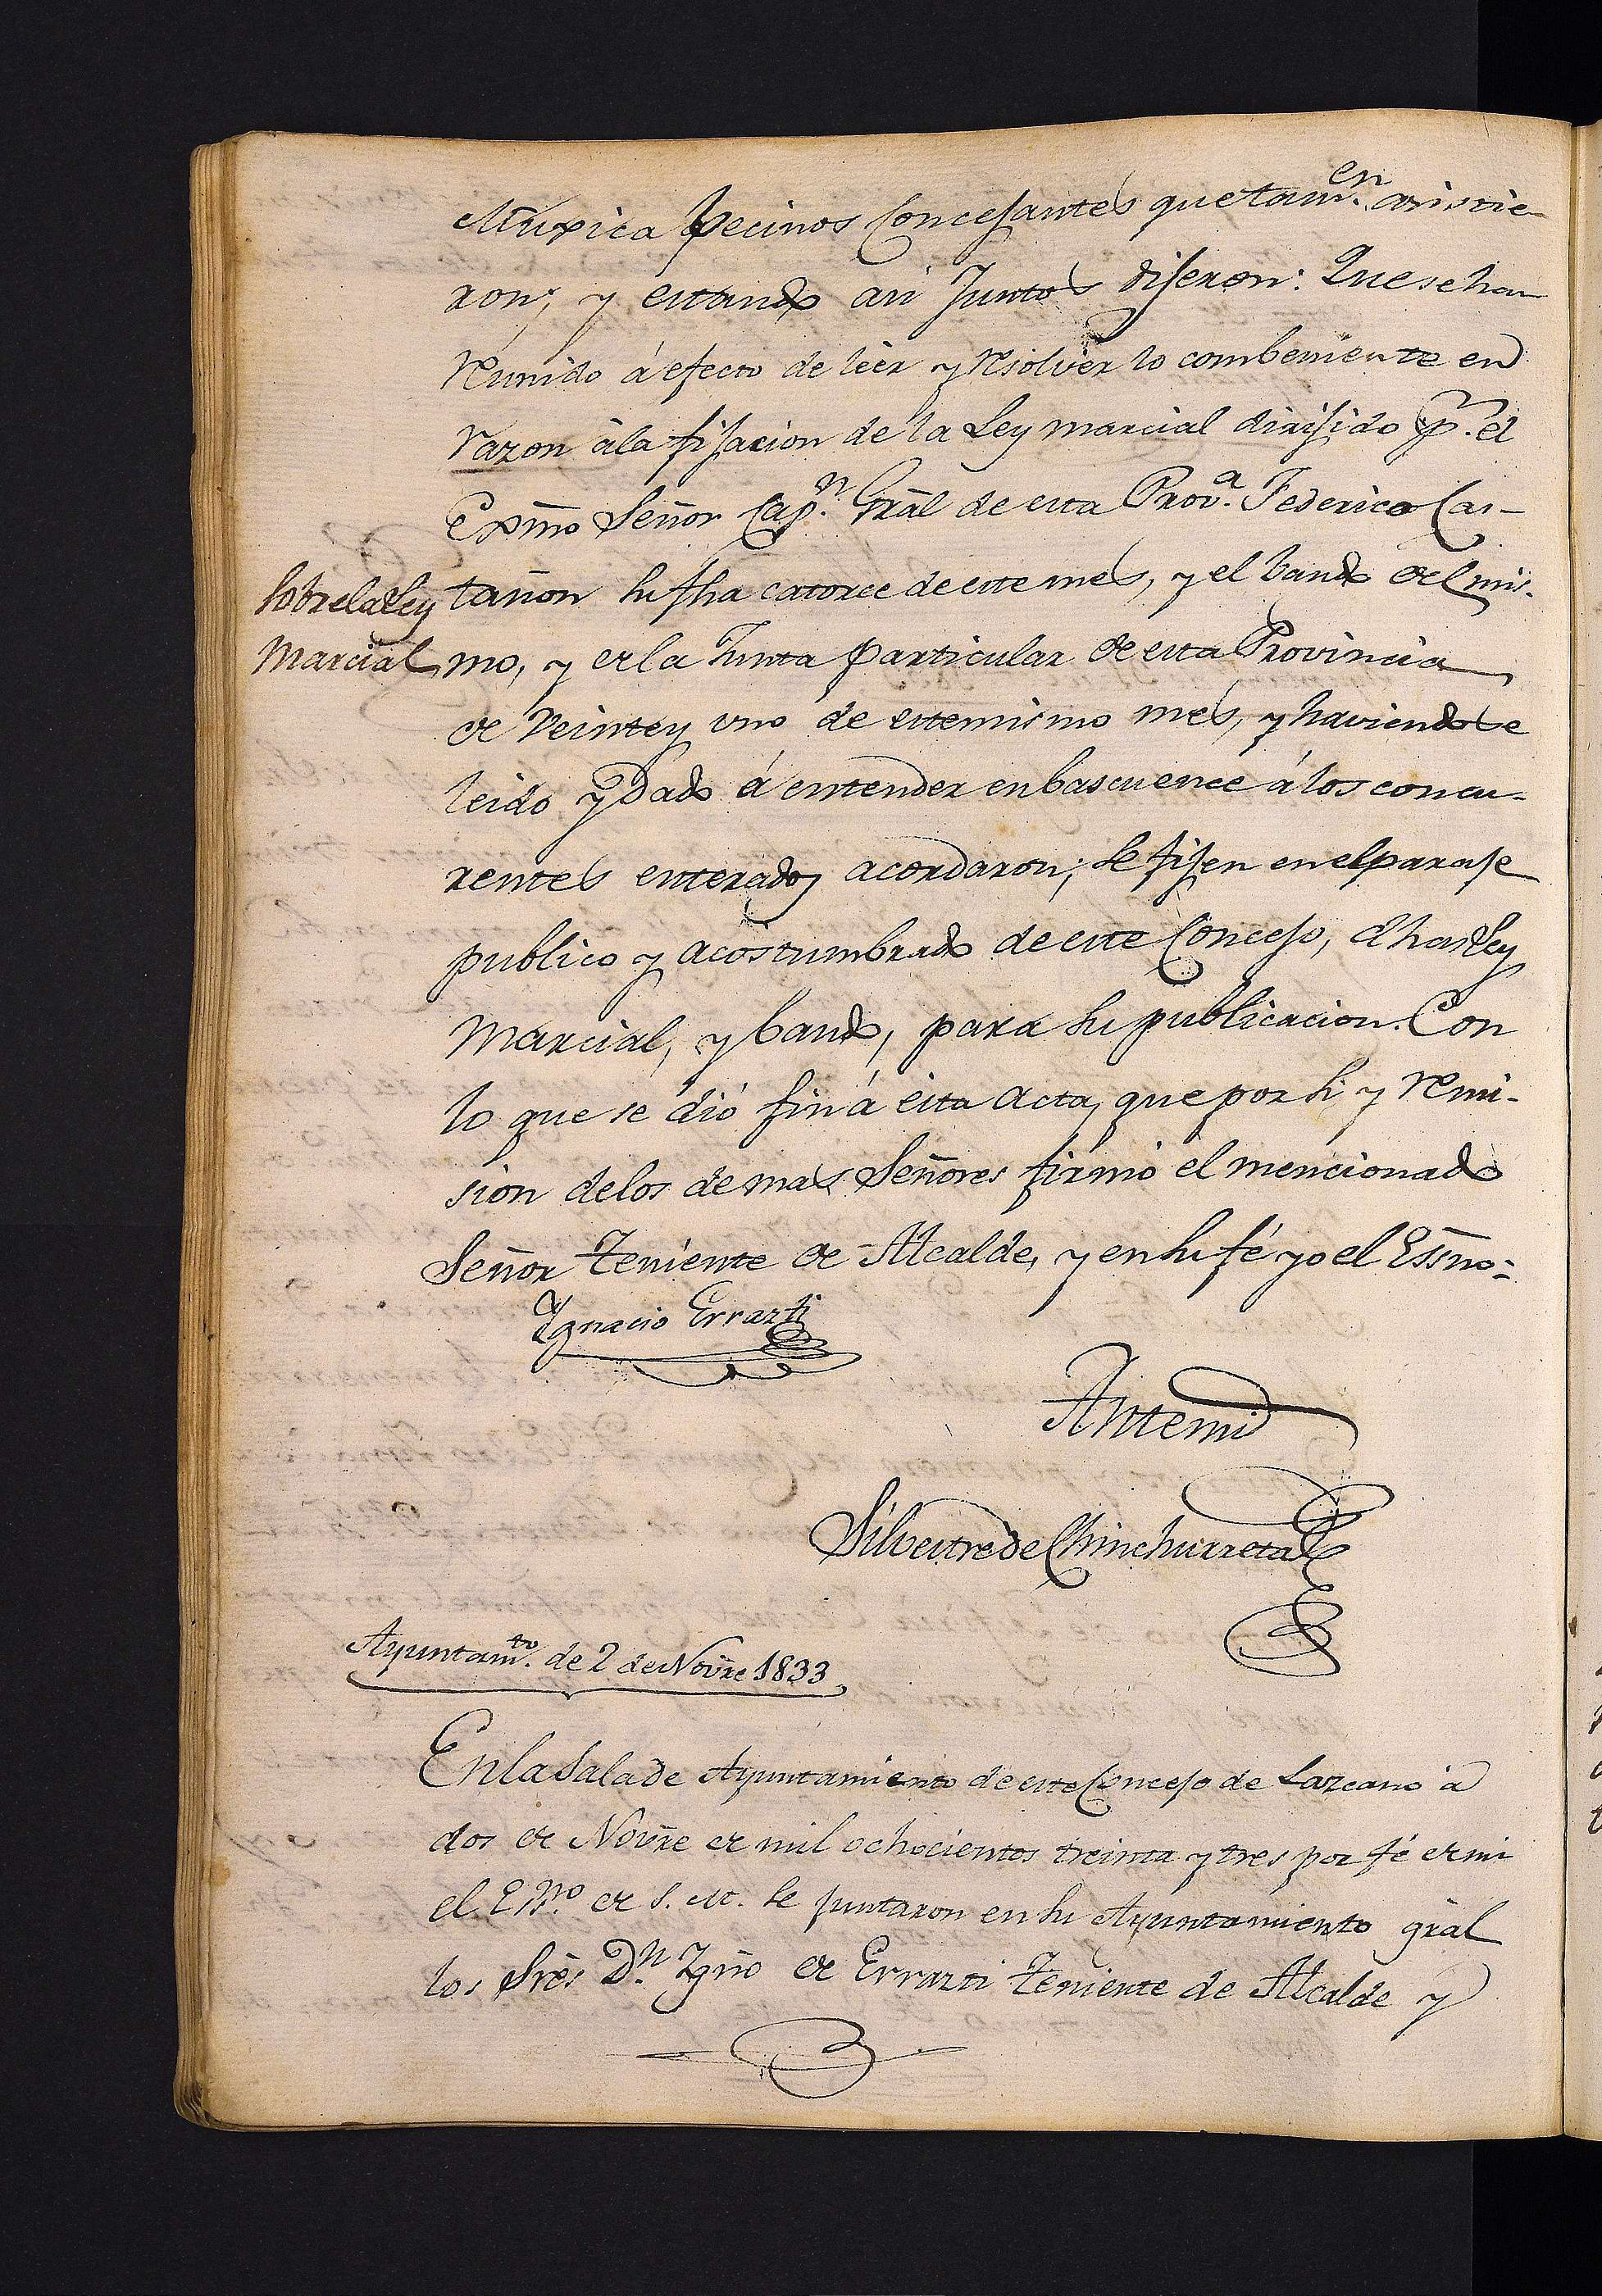 Muxica Vecinos Concejantes que tam.en asistie-
ron; y estando asi Juntos dijeron: Que se han
reunido á efecto de leer y resolver lo combeniente en
razon à la fijacion de la Ley marcial dirijido p.r el
Exm̃o Señor Cap.n Gral de esta Prov.a Federico Cas-
Sobre la Ley
Marcial
tañon su fha catorce de este mes, y el bando del mis-
mo, y de la Junta particular de esta Provincia
de Veinte y uno de este mismo mes, y haviendose
leido y dado á entender en bascuence á los concu-
rentes enterados acordaron; se fijen en el paraje
publico y acostumbrado de este Concejo, dha Ley
Marcial, y bando, para su publicacion. Con
lo que se dió fin á esta acta, que por si y remi-
sion de los demas Señores firmó el mencionado
Señor Teniente de Alcalde, y en su fé yo el Essno=
Ignacio Errazti
Antemi
Silvestre de Chinchurreta
Ayuntam.to de 2 de Novre 1833
En la Sala de Ayuntamiento de este Concejo de Lazcano á
dos de Novre de mil ochocientos treinta y tres por fé de mi
el Essno de S. M. se juntaron en su Ayuntamiento gral
los Sres D.n Ygño de Errazti Teniente de Alcalde y